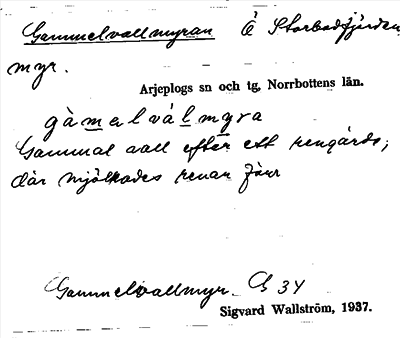 Gammelvallmyran Ö Storbadfjärden
myr.
Arjeplogs sn och tg, Norrbottens län.
gàmalválmyra
Gammal vall efter ett rengärde,
där mjölkades renar förr
Gammelvallmyr. G 34
Sigvard Wallström, 1937.